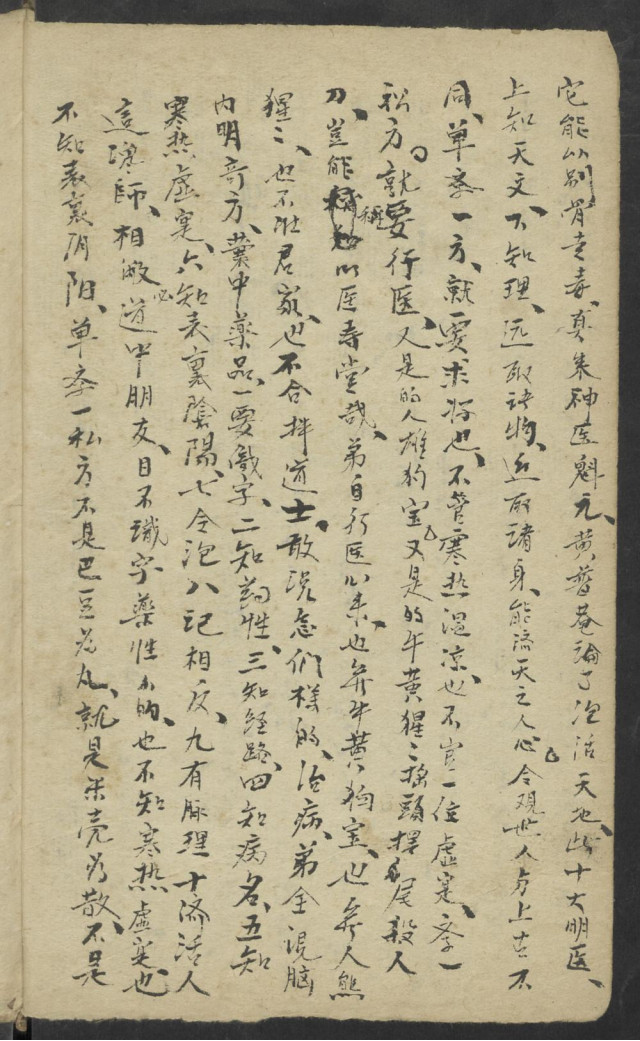 它能以别骨走毒、真朱神医魁元、黄普菴論了泡活天地、此十大明医、
上知天文、下知理、远取诸物、近取諸身、能济天之人心、今观世人多上古不
同、单李一方、就要求好也、不管寒热温凉、也不管一位虚寔、李一
私方、就要行医、人是的人雄狗宝、又是的牛黄猩〻搖頭摆尾殺人
刀、岂能称知以医寿堂哉、弟自行医以来、也弃牛黄狗宝、也弃人熊
猩〻、也不壮君家、也不合拌道士、敢说您们样的、治病、弟全說脑
内明奇方、囊中藥品、一要識字、二知药性、三知经路、四知病名、五知
寒热虚寔、六知表裏陰陽、七令泡、八记相反、九有脉理、十济活人
這壞師、相激道中朋友、目不識字、藥性不明、也不知寒热虚寔、也
不知表裏阴阳、单李一私方、不是巴豆为丸、就是米壳为散、不是